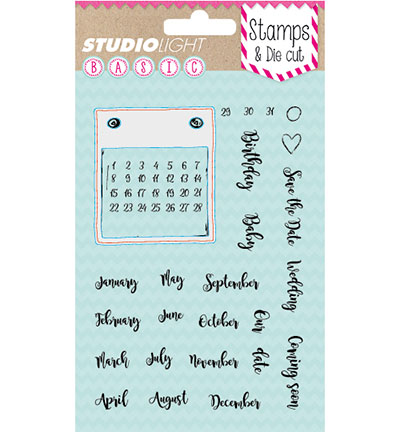 STUDIOLIGHT
BASIC
Stamps
& Die cut
29 30 31
1 2 3 4 5 6 7
8 9 10 11 12 13 14
15 16 17 18 19 20 21
22 23 24 25 26 27 28
Birthday
Baby
Save the Date
Wedding
Coming soon
Our date
January May September
February June October
March July November
April August December